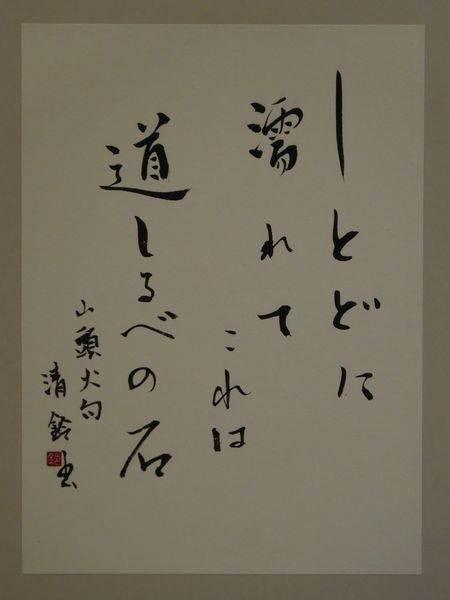 しとどに
濡れて
これは
道しるべの石
山頭火句
清鈴書